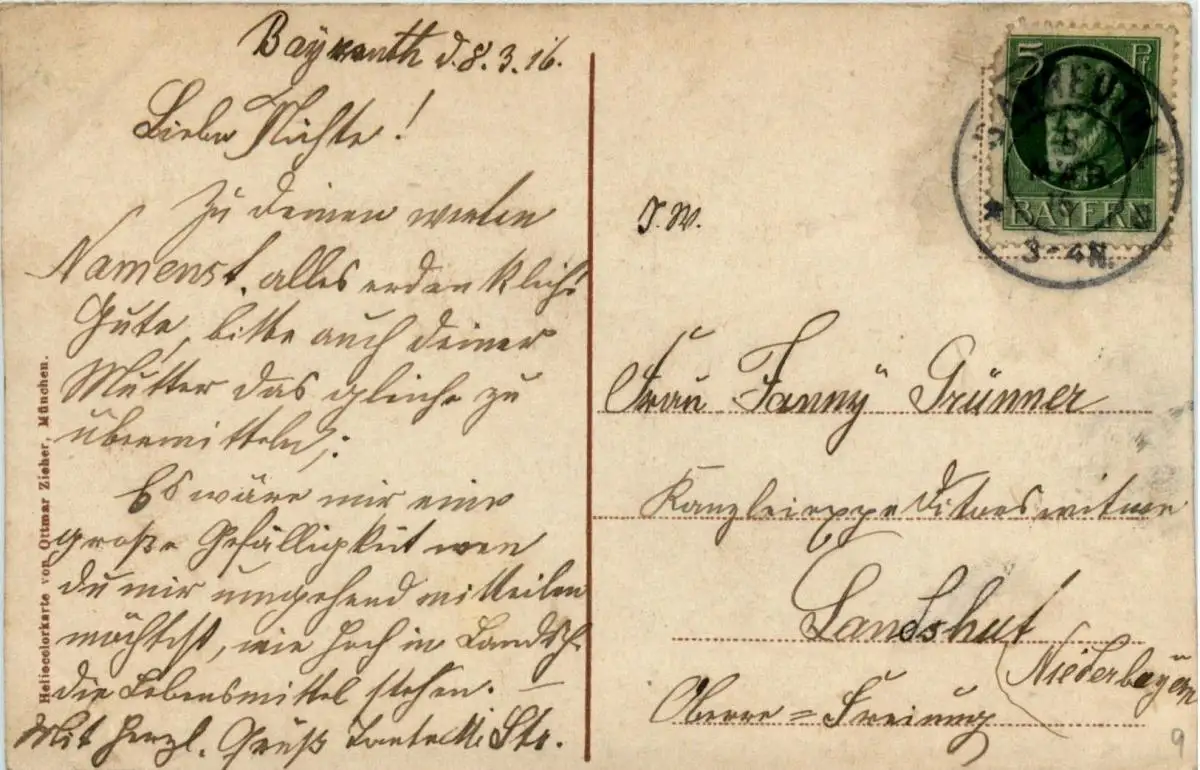 Bayreuth d. 8.3.16.
Liebe Nichte!
Zu deinen werten
Namenst. alles erdenklich
Gute, bitte auch deiner
Mutter das gleiche zu
übermitteln;
Es wäre mir eine
große Gefälligkeit wen
du mir umgehend mitteilen
möchtest, wie hoch in Landsh.
die Lebensmittel stehen. —
Mit herzl. Gruß Tante Str.
Heliocolorkarte von Ottmar Zieher, München.
5 Pf
BAYREUTH
8 MÄR 16
3-4N.
BAYERN
Frau "Fanny" Grünner
Kanzleiexpeditorswitwe
Landshut
(Niederbayern
Obere = Freiung
9